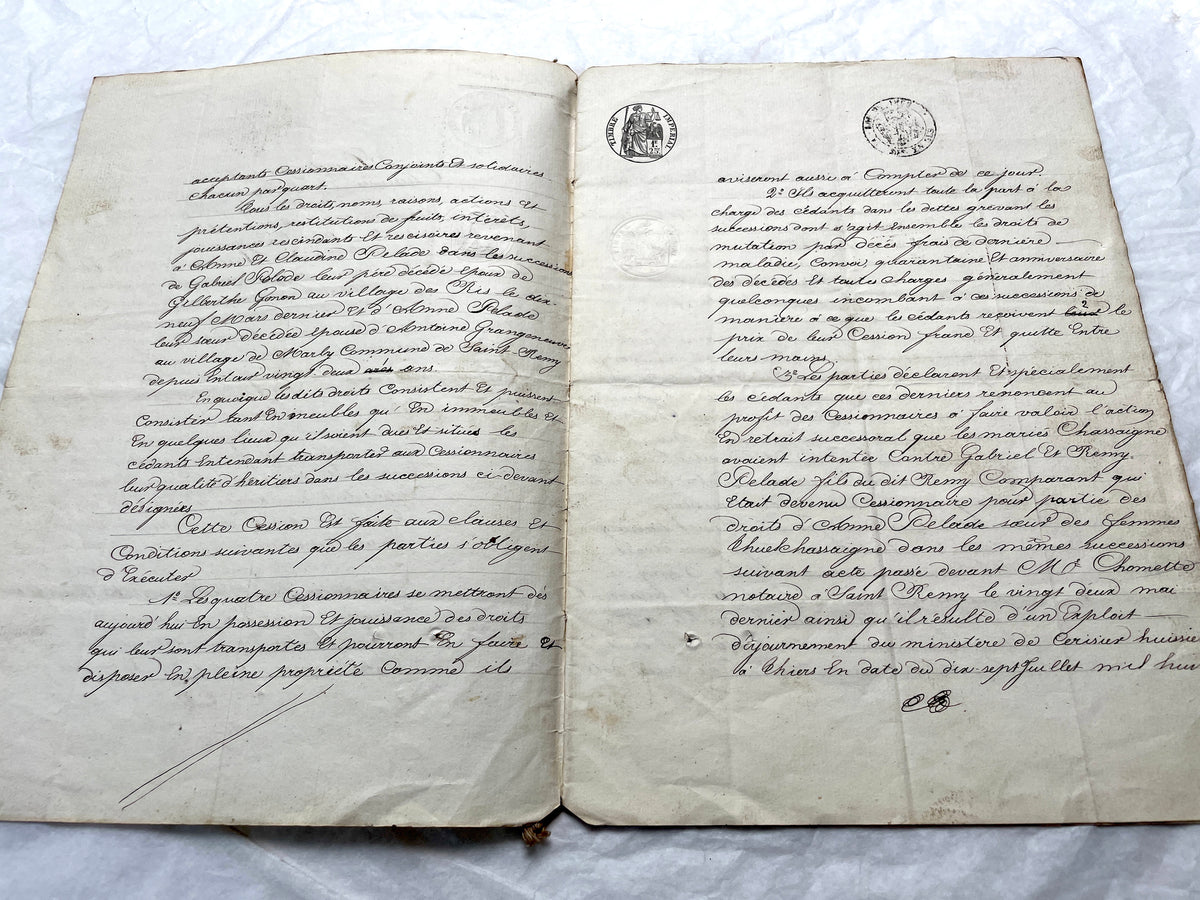 acceptants Cessionnaires Conjoints Et solidaires
chacun par quart.
Tous les droits, noms, raisons, actions Et
prétentions, restitutions de fruits, intérêts,
jouissances rescindants Et rescisoires revenant
à Anne Et Claudine Pelade dans les successions
de Gabriel Pelade leur père décédé Epoux de
Gilberthe Gonon au village des Ris le dix
neuf Mars dernier Et d'Anne Pelade
leur sœur décédée épouse d'Antoine Grangeneuve
au village de Marly Commune de Saint-Remy
depuis Entour vingt deux ans.
En quoique les dits droits Consistent Et puissent
Consister tant En meubles qu'En immeubles Et
En quelques lieux qu'ils soient dues Et situés les
cédants Entendant transporter aux Cessionnaires
leur qualité d'héritiers dans les successions ci-devant
désignées
Cette Cession Est faite aux clauses Et
Conditions suivantes que les parties s'obligent
d'Exécuter
1º Les quatre Cessionnaires se mettront dès
aujourd'hui En possession Et jouissance des droits
qui leur sont transportés Et pourront En faire Et
disposer En pleine propriété comme ils
TIMBRE IMPERIAL
aviseront aussi à Compter de ce jour.
2º Ils acquitteront toute la part à la
charge des cédants dans les dettes grevant les
successions dont s'agit Ensemble les droits de
mutation par décès frais de dernière
maladie, Convoi quarantaine Et anniversaire
des décédés Et toutes charges généralement
quelconques incombant à ces successions de
manière à ce que les cédants reçoivent le
prix de leur Cession franc Et quitte Entre
leurs mains.
3º Les parties déclarent Et spécialement
les cédants que ces derniers renoncent au
profit des Cessionnaires à faire valoir l'action
En retrait successoral que les mariés Chassaigne
avaient intentée Contre Gabriel Et Remy
Pelade fils du dit Remy Comparant qui
Etait devenu Cessionnaire pour partie des
droits d'Anne Pelade sœur des femmes
Chassaigne dans les mêmes successions
suivant acte passé devant Me Chomette
notaire à Saint Remy le vingt deux mai
dernier ainsi qu'il résulte d'un Exploit
d'ajournement du ministère de Cerisier huissier
à Thiers En date du dix sept Juillet mil huit